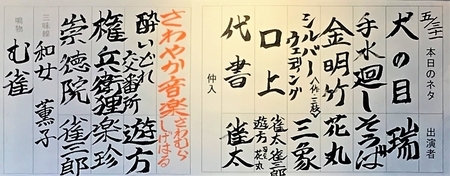 本日のネタ 出演者
犬の目 瑞
手水廻し そうば
金明竹 花丸
シルバーウェディング 三象
口上 雀太 雀三郎 遊方 花丸
代書 雀太
仲入
さわやか音楽 さわむらしげはる
酔いどれ交番所 遊方
権兵衛狸 楽珍
崇徳院 雀三郎
三味線 和女 薫子
鳴物 む雀